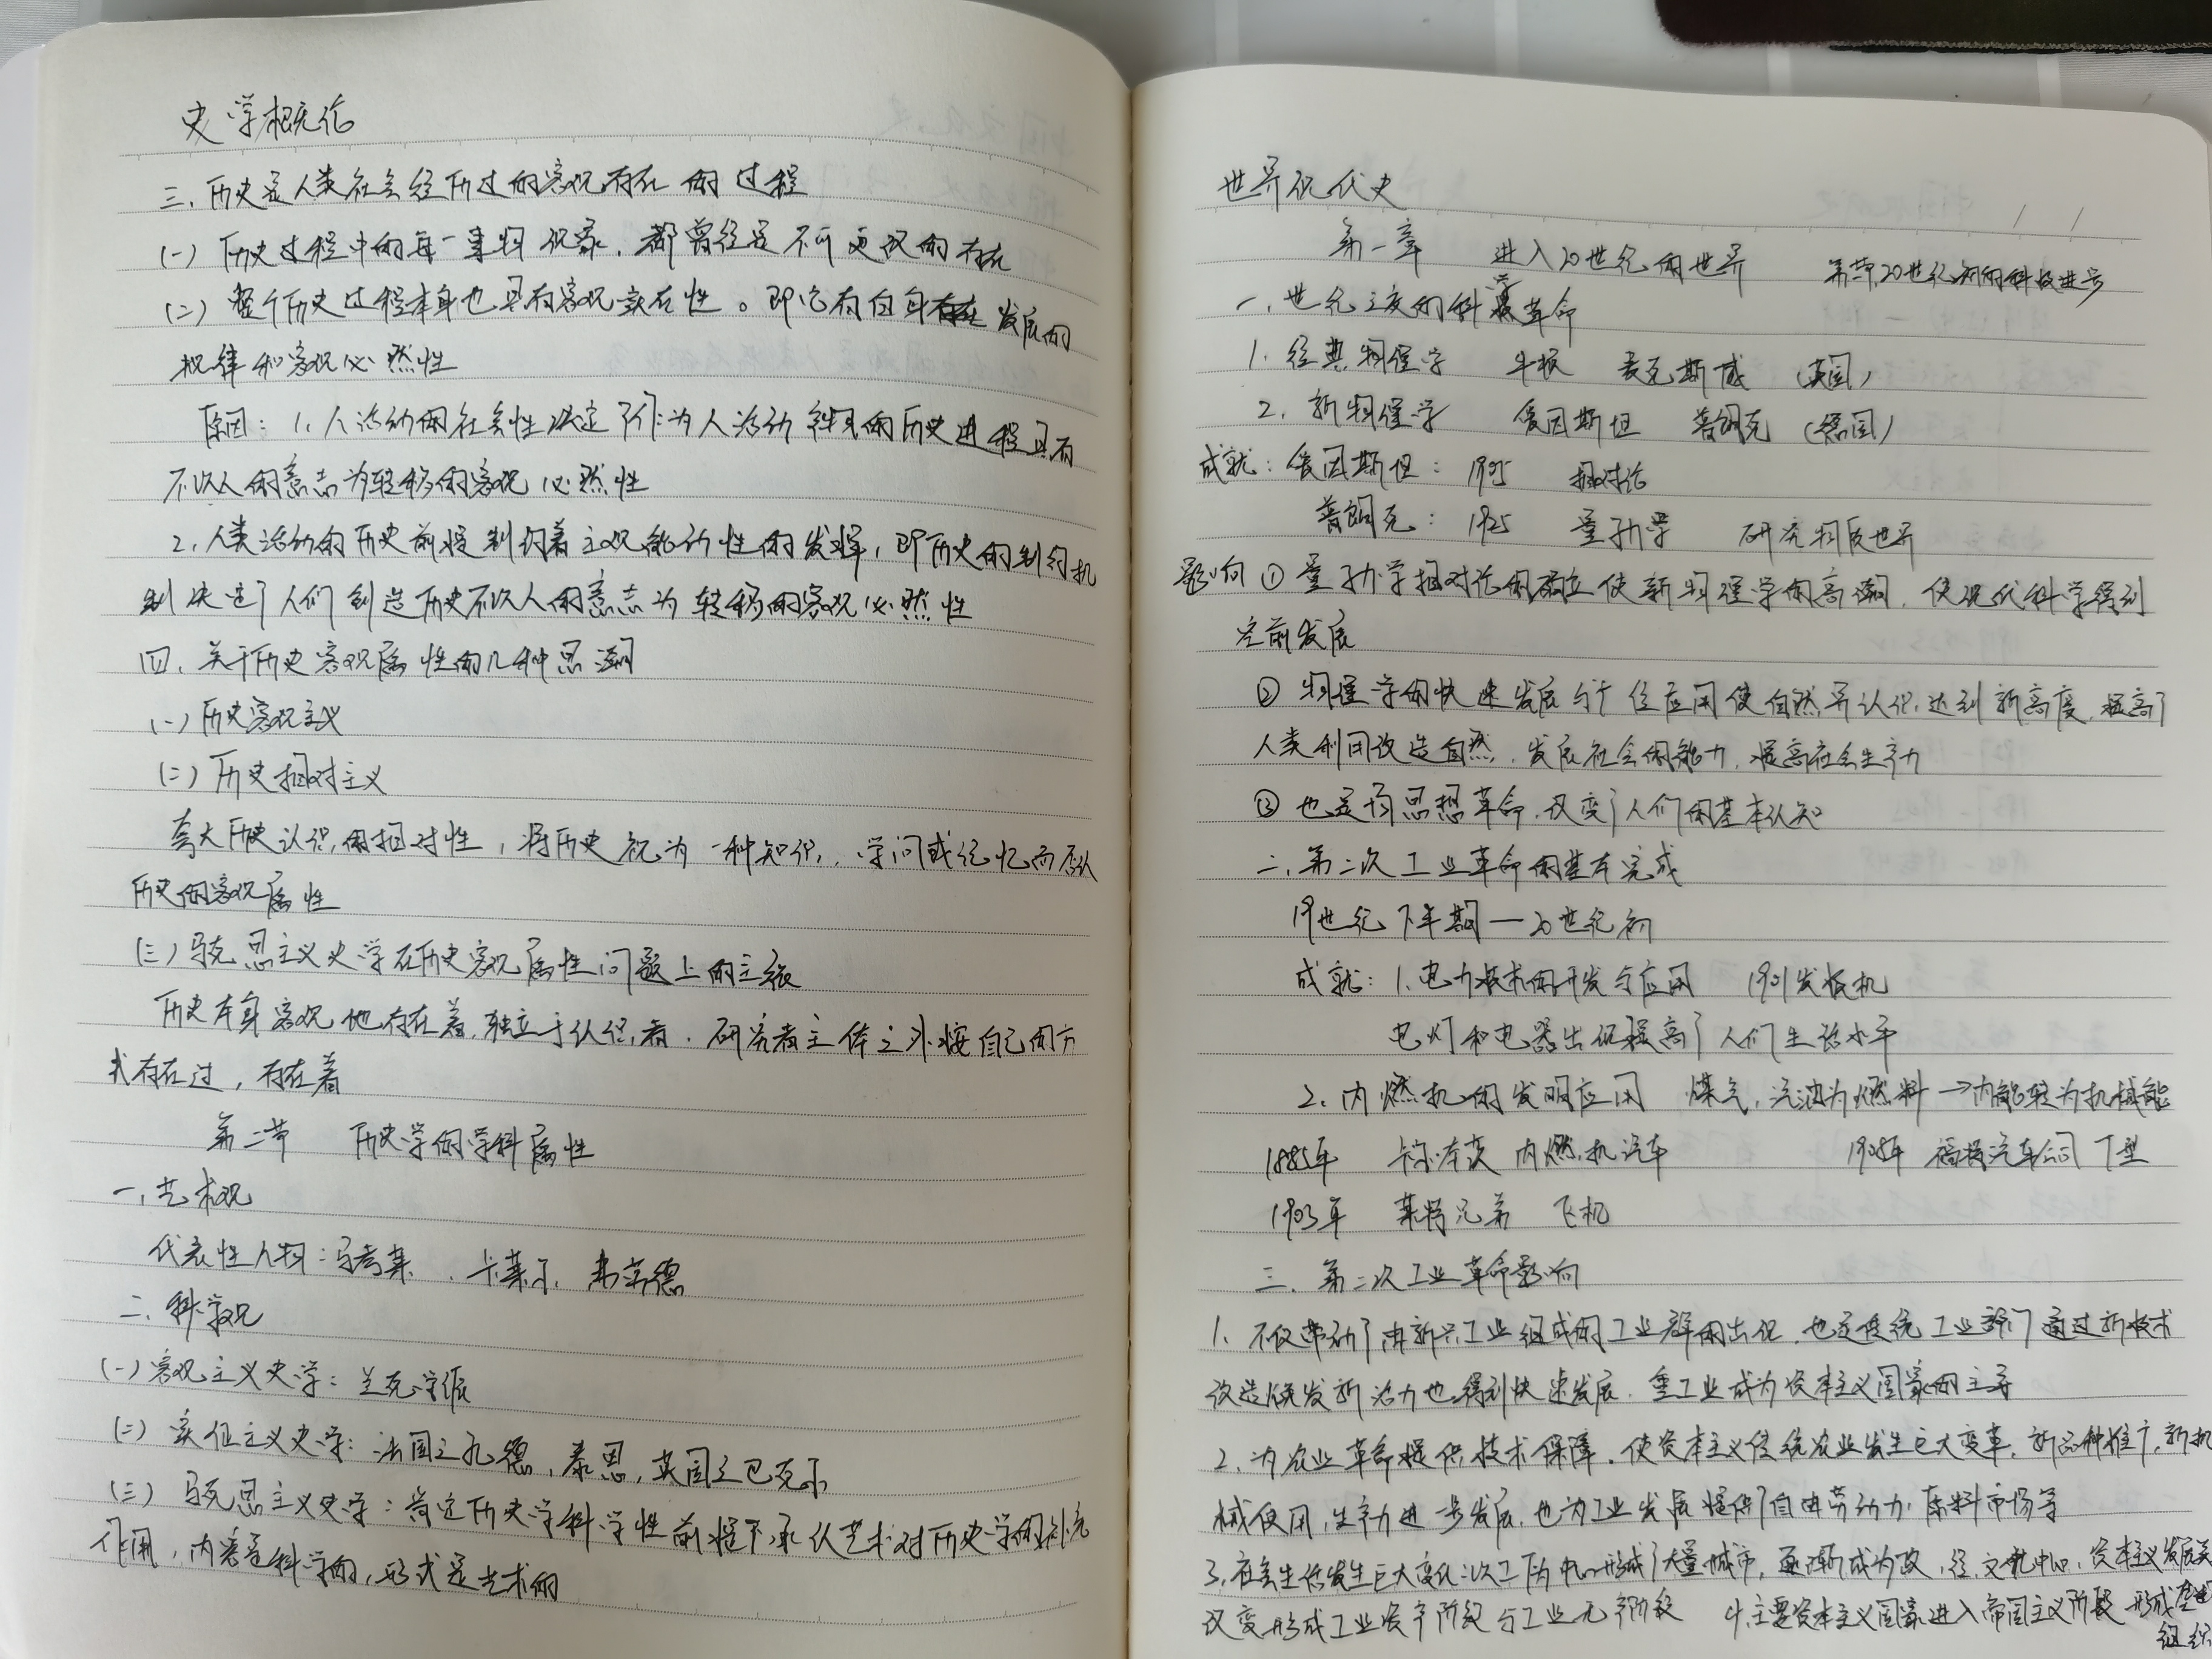 史学概论
三、历史是人类社会经历过的客观存在的过程
(一) 历史过程中的每一事物现象，都曾经是不可更改的存在
(二) 整个历史过程本身也具有客观实在性。即它有自身存在发展的
规律和客观必然性
原因：1、人活动的社会性决定了作为人活动的历史进程具有
不以人的意志为转移的客观必然性
2、人类活动的历史前提制约着主观能动性的发挥，即历史的制约机
制决定了人们创造历史不以人的意志为转移的客观必然性
四、关于历史客观属性的几种思潮
(一) 历史客观主义
(二) 历史相对主义
夸大历史认识的相对性，将历史视为一种知识、学问或记忆而否认
历史的客观属性
(三) 马克思主义史学在历史客观属性问题上的主张
历史本身客观地存在着，独立于认识者、研究者主体之外按自己的方
式存在过，存在着
第二节 历史学的学科属性
一、艺术观
代表性人物：马考莱、卡莱尔、弗劳德
二、科学观
(一) 客观主义史学：兰克学派
(二) 实证主义史学：法国之孔德，泰恩，英国之巴克尔
(三) 马克思主义史学：肯定历史学科学性前提下承认艺术对历史学的补充
作用，内容是科学的，形式是艺术的
世界现代史
第一章 进入20世纪的世界 第一节20世纪初的科技进步
一、世纪之交的科学革命
1、经典物理学 牛顿 麦克斯威 (英国)
2、新物理学 爱因斯坦 普朗克 (德国)
成就：爱因斯坦：1905 相对论
普朗克：1925 量子力学 研究物质世界
影响 ① 量子力学相对论的确立使新物理学的高潮，使现代科学得到
空前发展
② 物理学的快速发展与广泛应用使自然界认识达到新高度，提高了
人类利用改造自然，发展社会的能力，提高社会生产力
③ 也是场思想革命，改变了人们的基本认知
二、第二次工业革命的基本完成
19世纪下半期—20世纪初
成就：1、电力技术的开发与应用 1901发报机
电灯和电器出现提高了人们生活水平
2、内燃机的发明应用 煤气，汽油为燃料→内能转为机械能
1885年 卡尔本茨 内燃机汽车 1908年 福特汽车公司 T型
1903年 莱特兄弟 飞机
三、第二次工业革命影响
1、不仅带动了由新兴工业组成的工业群的出现，也是传统工业部门通过新技术
改造焕发新活力也得到快速发展，重工业成为资本主义国家的主导
2、为农业革命提供技术保障，使资本主义传统农业发生巨大变革，新品种推广，新机
械使用，生产力进一步发展，也为工业发展提供了自由劳动力，原料市场等
3、社会生活发生巨大变化：以工厂为中心形成了大量城市，逐渐成为政，经，文化中心，资本主义发展
改变形成工业资产阶级与工业无产阶级 4、主要资本主义国家进入帝国主义阶段 形成垄断
组织